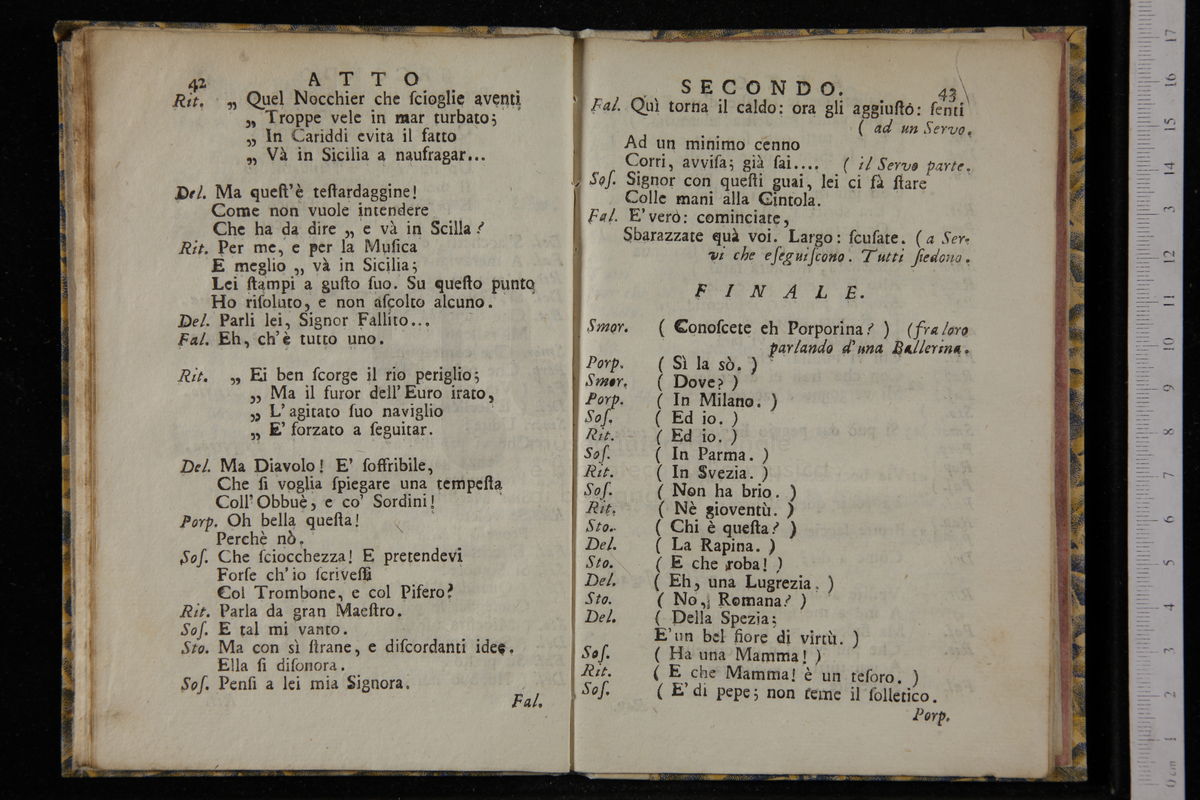 42 ATTO
Rit. „ Quel Nocchier che ſcioglie aventi
„ Troppe vele in mar turbato;
„ In Cariddi evita il fatto
„ Và in Sicilia a naufragar...
Del. Ma queſt'è teſtardaggine!
Come non vuole intendere
Che ha da dire „ e và in Scilla?
Rit. Per me, e per la Muſica
E meglio „ và in Sicilia;
Lei ſtampi a guſto ſuo. Su queſto punto
Ho riſoluto, e non aſcolto alcuno.
Del. Parli lei, Signor Fallito...
Fal. Eh, ch'è tutto uno.
Rit. „ Ei ben ſcorge il rio periglio;
„ Ma il furor dell'Euro irato,
„ L'agitato ſuo naviglio
„ E' forzato a ſeguitar.
Del. Ma Diavolo! E' ſoffribile,
Che ſi voglia ſpiegare una tempeſta
Coll'Obbuè, e co' Sordini!
Porp. Oh bella queſta!
Perchè nò.
Soſ. Che ſciocchezza! E pretendevi
Forſe ch'io ſcriveſſi
Col Trombone, e col Pifero?
Rit. Parla da gran Maeſtro.
Soſ. E tal mi vanto.
Sto. Ma con sì ſtrane, e diſcordanti idee.
Ella ſi diſonora.
Soſ. Penſi a lei mia Signora.
Fal.
SECONDO. 43
Fal. Quì torna il caldo: ora gli aggiuſtó: ſenti
( ad un Servo.
Ad un minimo cenno
Corri, avviſa; già ſai.... ( il Servo parte.
Soſ. Signor con queſti guai, lei ci fà ſtare
Colle mani alla Cintola.
Fal. E' vero: cominciate,
Sbarazzate quà voi. Largo: ſcuſate. ( a Ser-
vi che eſeguiſcono. Tutti ſiedono.
FINALE.
Smor. ( Conoſcete eh Porporina? ) (fra loro
parlando d'una Ballerina.
Porp. ( Sì la sò. )
Smor. ( Dove? )
Porp. ( In Milano. )
Soſ. ( Ed io. )
Rit. ( Ed io. )
Soſ. ( In Parma. )
Rit. ( In Svezia. )
Soſ. ( Non ha brio. )
Rit. ( Nè gioventù. )
Sto. ( Chi è queſta? )
Del. ( La Rapina. )
Sto. ( E che roba! )
Del. ( Eh, una Lugrezia. )
Sto. ( No, Romana? )
Del. ( Della Spezia;
E' un bel fiore di virtù. )
Soſ. ( Ha una Mamma! )
Rit. ( E che Mamma! è un teſoro. )
Soſ. ( E' di pepe; non teme il ſolletico.
Porp.
0 cm 1 2 3 4 5 6 7 8 9 10 11 12 13 14 15 16 17